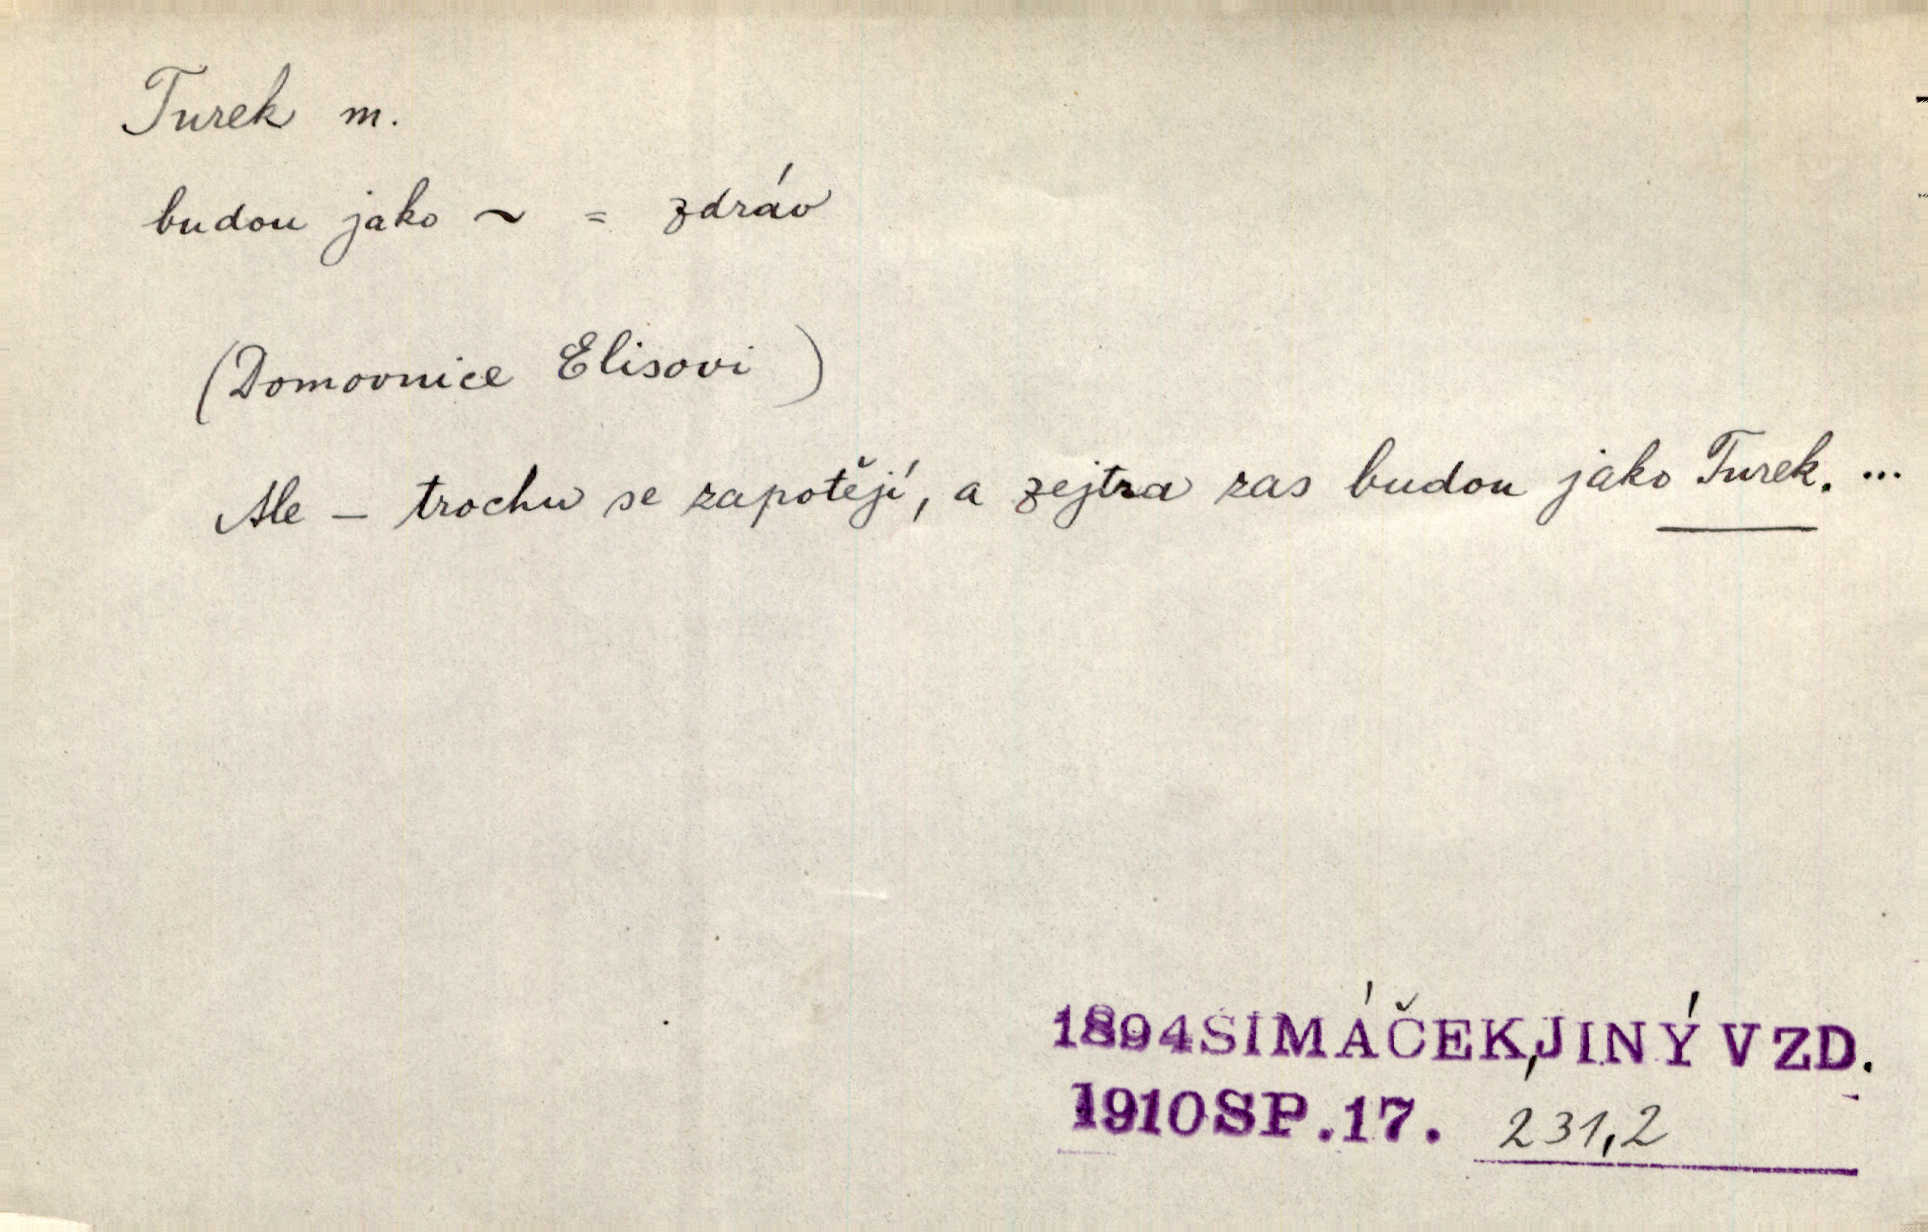 Turek m.
budou jako ~ = zdráv
(Domovnice Elisovi)
Ale – trochu se zapotějí, a zejtra zas budou jako Turek. ...
1894 SIMÁČEK, JINÝ VZD.
1910 SP. 17. 231,2